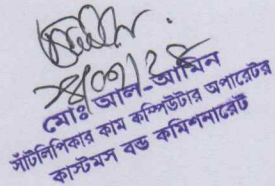 মোঃ আল-আমিন
সাঁটলিপিকার কাম কম্পিউটার অপারেটর
কাস্টমস বন্ড কমিশনারেট